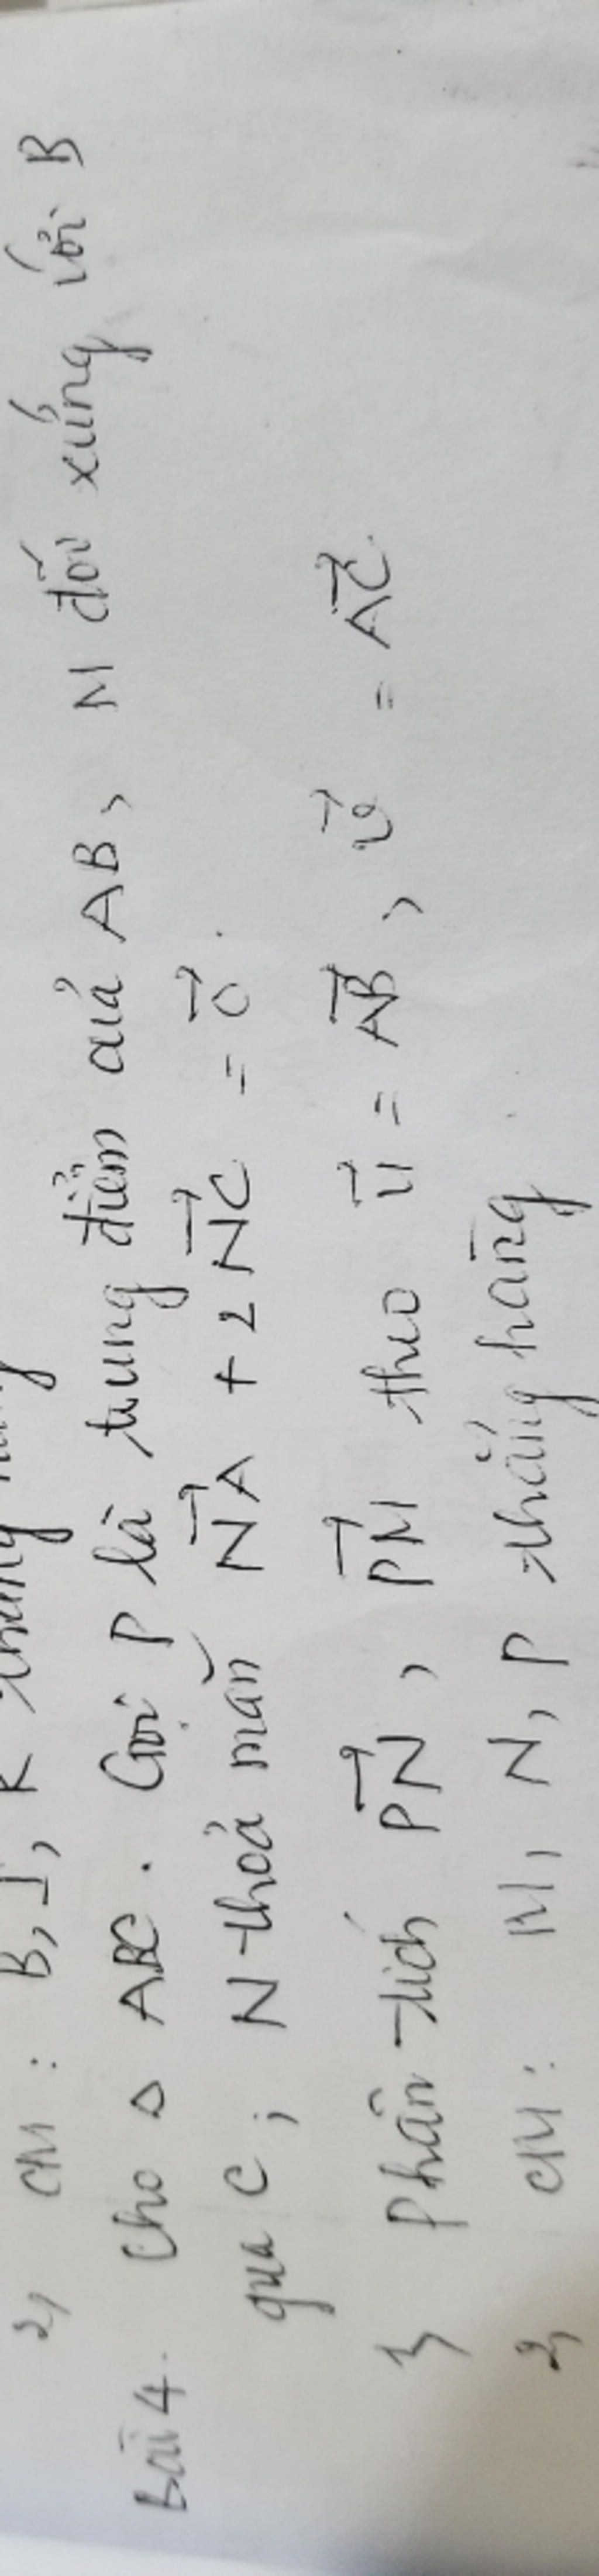 2, CM : B, I, K thẳng hàng
Bài 4. Cho Δ ABC. Gọi P là trung điểm của AB, M đối xứng với B
qua C ; N thoả mãn NA⃗ + 2NC⃗ = 0⃗.
1, Phân tích PN⃗, PM⃗ theo u⃗ = AB⃗, v⃗ = AC⃗.
2, CM: M, N, P thẳng hàng